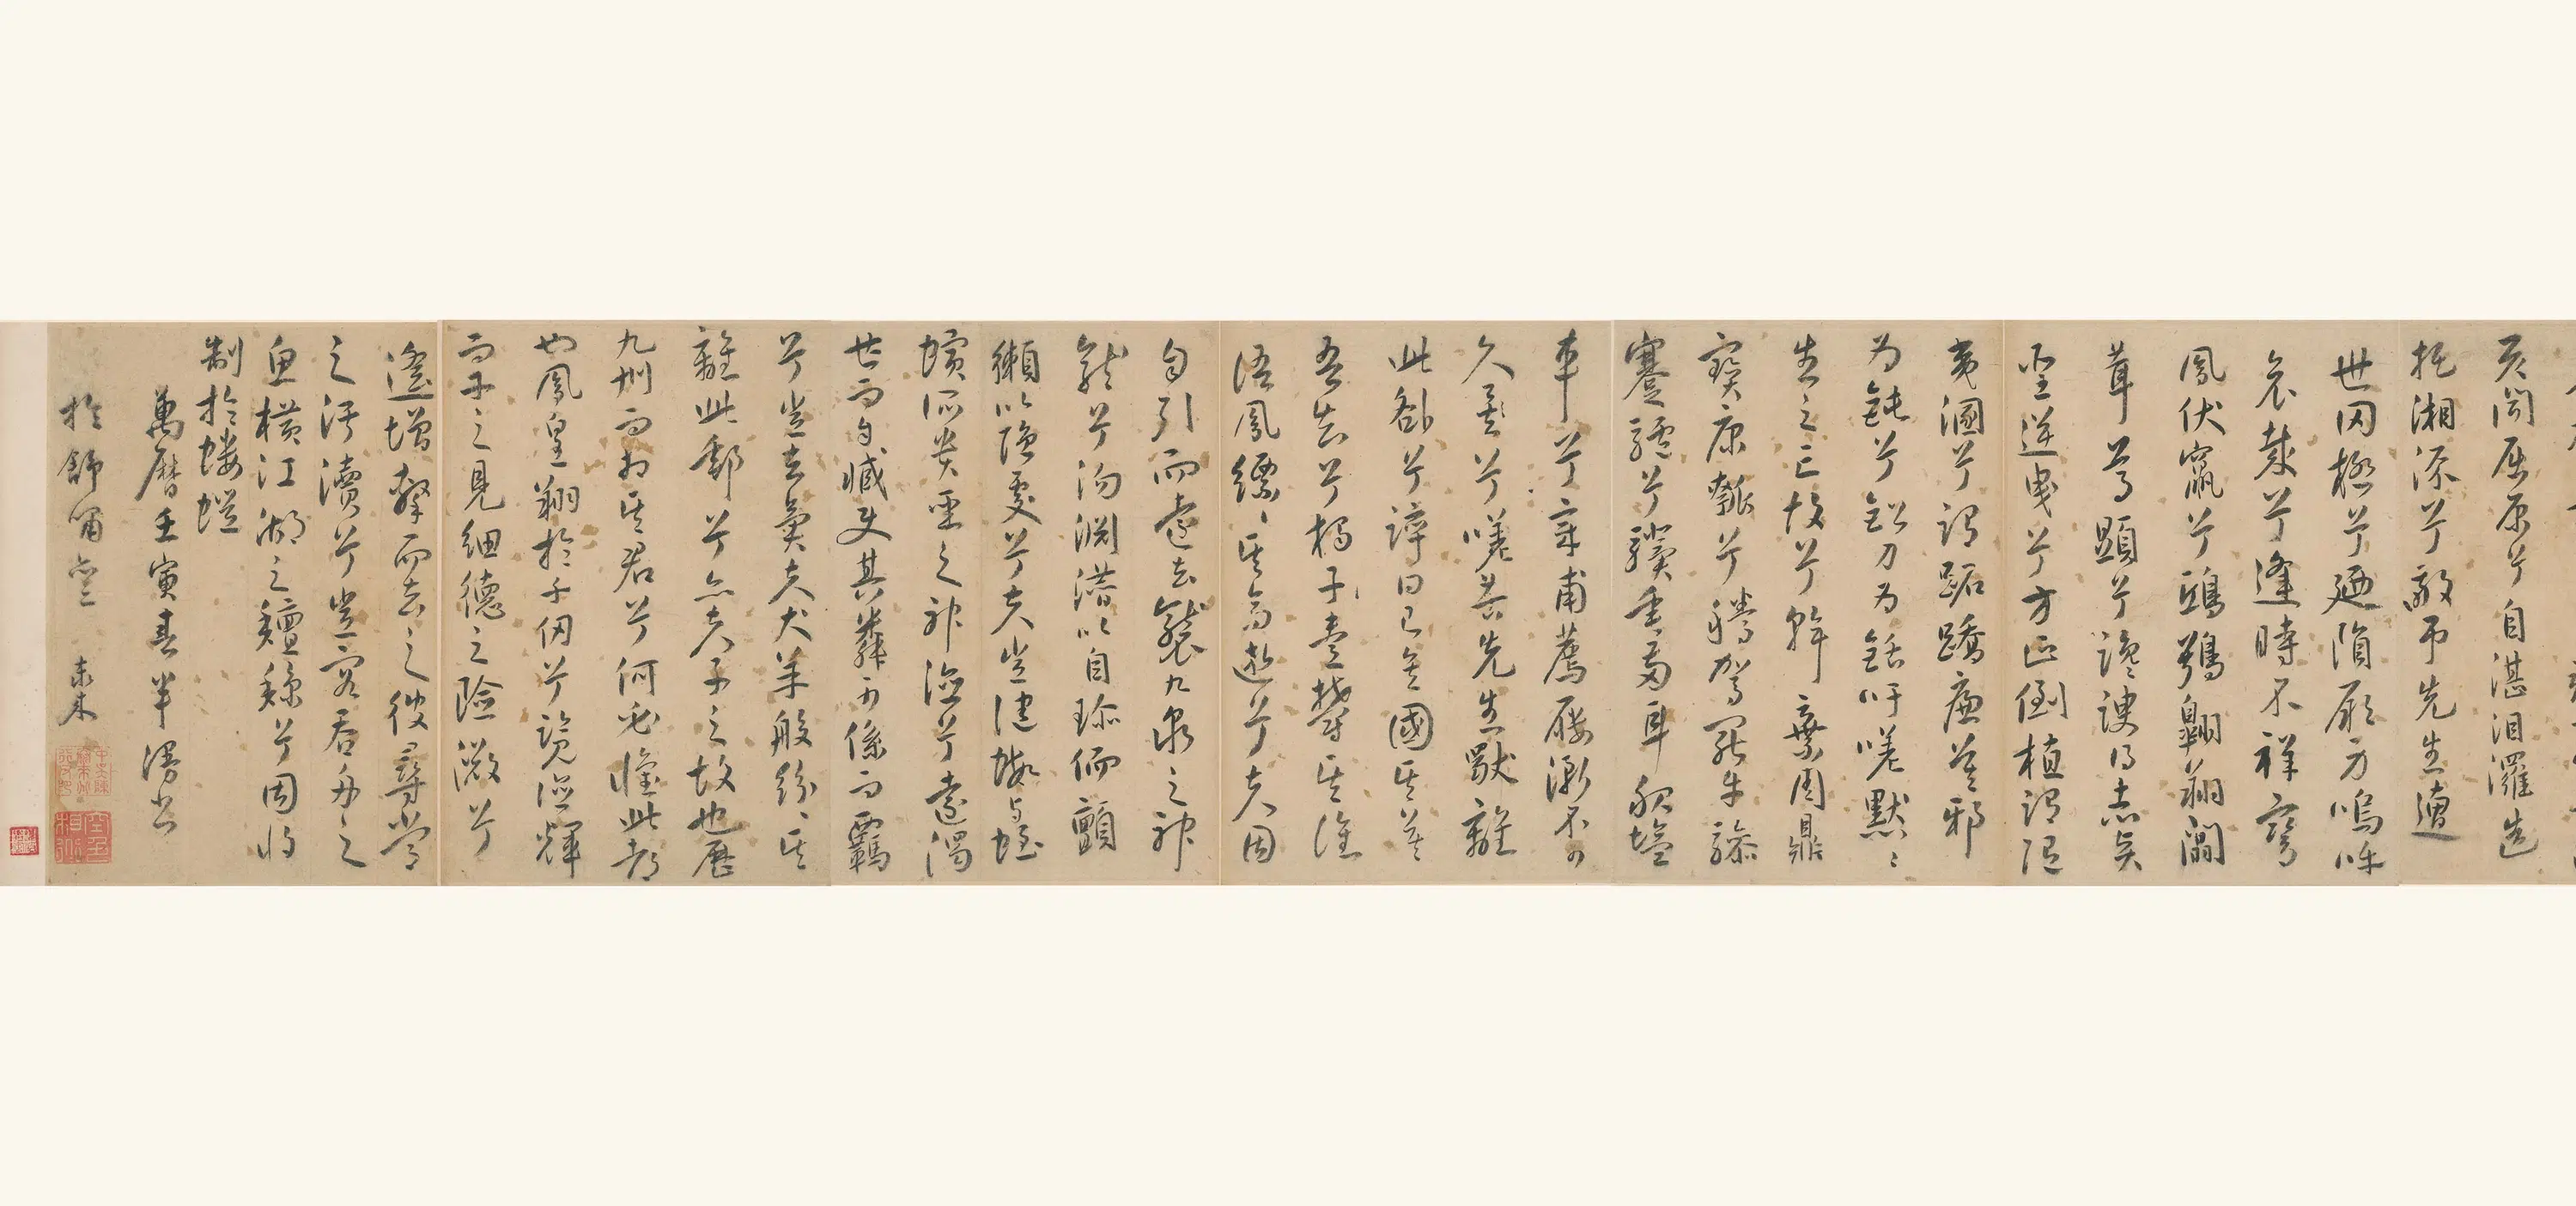 矣闻屈原兮自湛汨羅造
托湘流兮敬吊先生遭
世罔極兮廼隕厥身嗚呼
哀哉兮逢時不祥鸞
鳳伏竄兮鴟鴞翱翔闒
茸尊顯兮讒諛得志賢
聖逆曳兮方正倒植謂隨
夷溷兮謂跖蹻廉莫邪
为鈍兮鉛刀为銛吁嗟默〻
生之亡故兮斡棄周鼎
寶康瓠兮騰駕罷牛驂
蹇驢兮驥垂兩耳服塩
車兮章甫薦屨漸不可
久兮嗟苦先生獨離
此咎兮誶曰已矣國其莫
吾知兮獨子壹鬱其誰
語鳳縹〻其高逝兮夫固
自引而遠去襲九泉之神
龍兮沕淵潜以自珍偭蟂
獺以隐處兮夫豈從蝦与蛭
螾所貴聖之神德兮遠濁
世而自臧使其麟可係而羈
兮豈云異夫犬羊般紛〻其
離此郵兮亦夫子之故也歷
九州而相其君兮何必懷此都
也鳳皇翔於千仞兮覽德輝
而下之見細德之險微兮
遥增擊而去之彼尋常
之汙瀆兮豈容吞舟之
魚横江湖之鱣鯨兮固将
制於螻螘
萬曆壬寅春半漫书